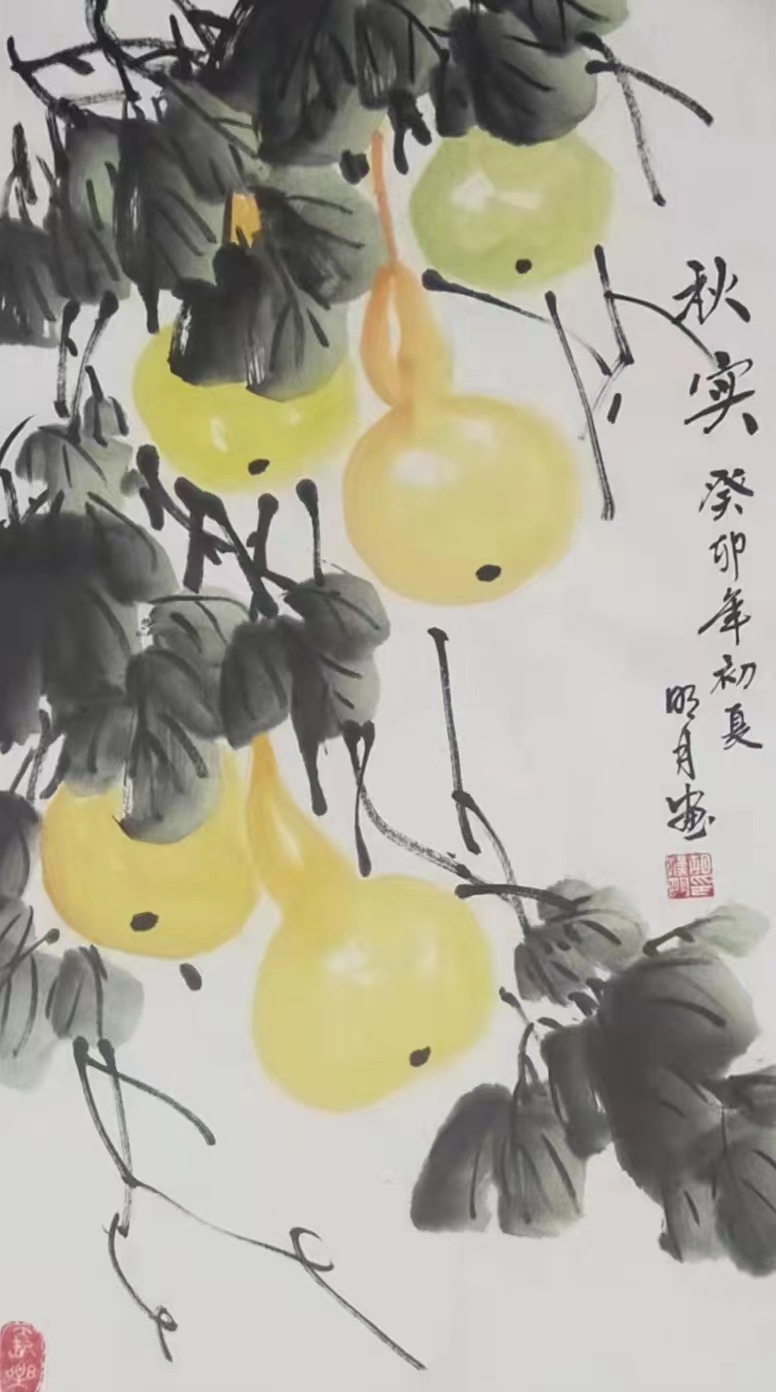 秋实
癸卯年初夏
明月画